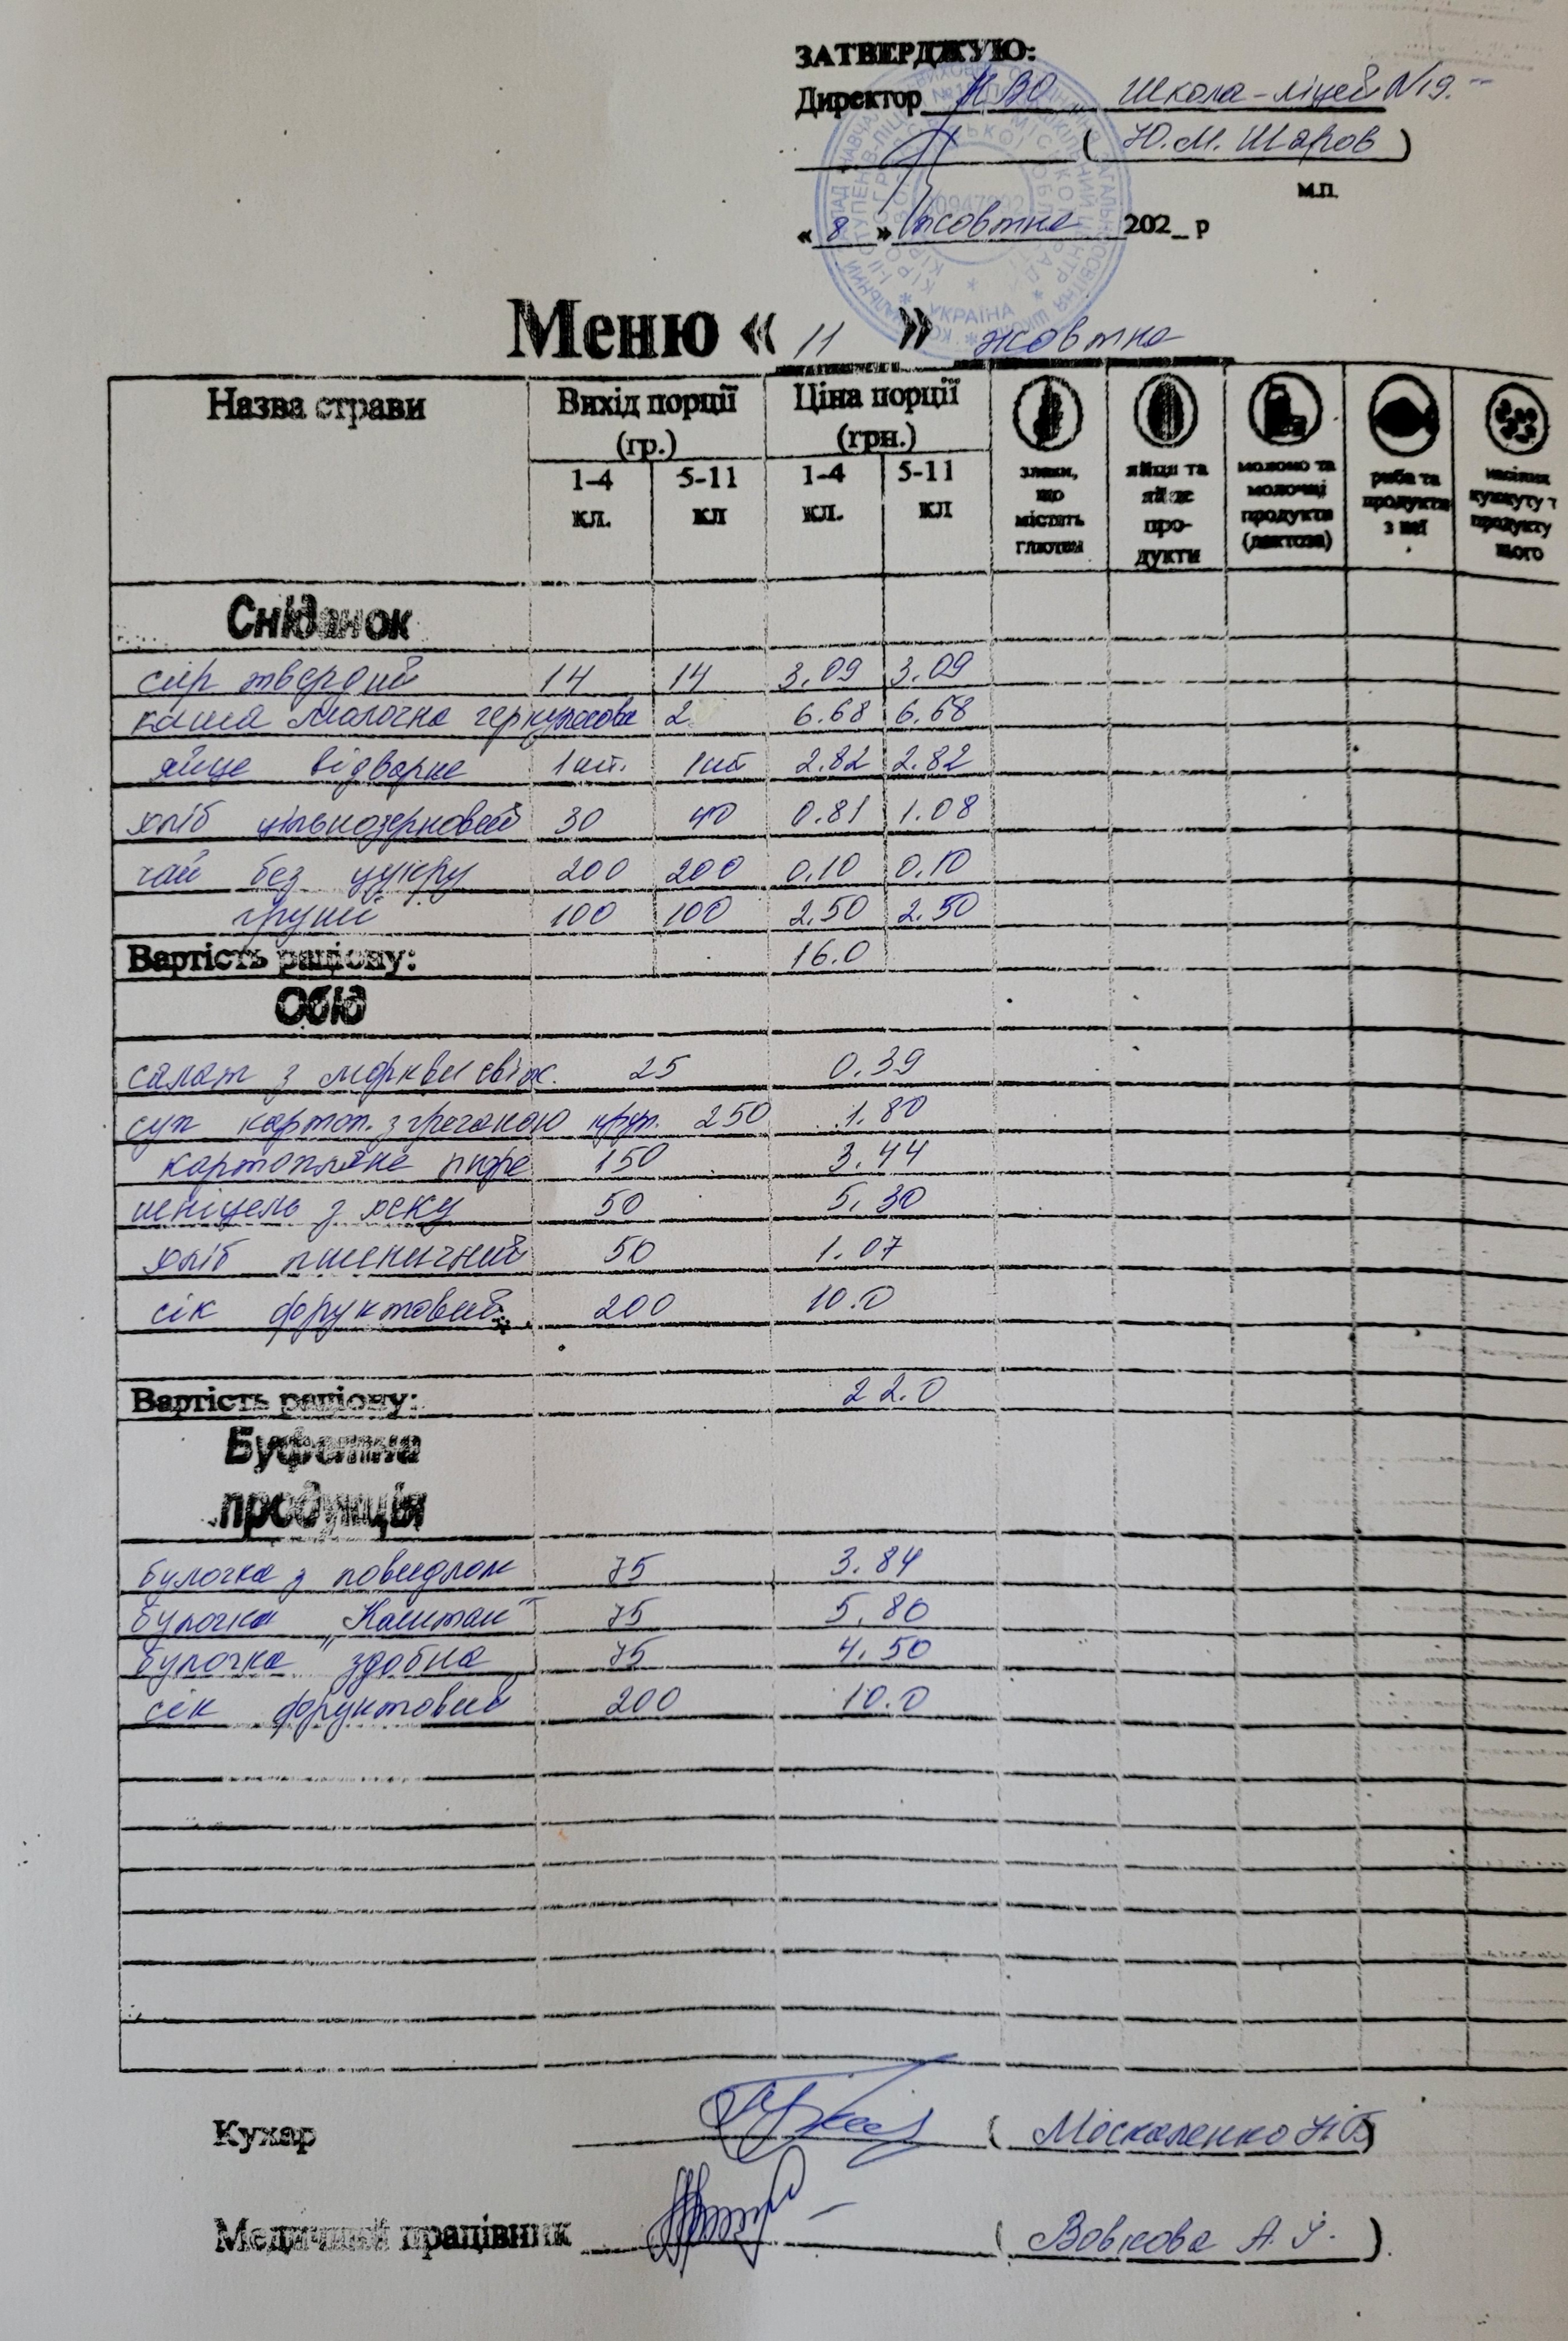 ЗАТВЕРДЖУЮ:
Директор НВО Школа-ліцей №19
( Ю.М. Шаров )
м.п.
« 8 » жовтня 202_ р
УКРАЇНА
Меню « 11 » жовтня
Назва страви Вихід порції (гр.) Ціна порції (грн.)
1-4 кл. 5-11 кл 1-4 кл. 5-11 кл
злаки, що містять глютен
яйця та яйце про-дукти
молоко та молочні продукти (лактоза)
риба та продукти з неї
насіння кунжуту т продукту нього
Сніданок
сир твердий 14 14 3,09 3,09
каша молочна геркулесова 2 6.68 6.68
яйце відварне 1шт. 1шт 2.82 2.82
хліб цільнозерновий 30 40 0.81 1.08
чай без цукру 200 200 0,10 0,10
груші 100 100 2.50 2.50
Вартість раціону: 16.0
Обід
салат з моркви свіж. 25 0.39
суп картоп. з гречаною круп. 250 1.80
картопляне пюре 150 3.44
шніцель з хеку 50 5,30
хліб пшеничний 50 1.07
сік фруктовий 200 10.0
Вартість раціону: 22.0
Буфетна
продукція
булочка з повидлом 75 3.84
булочка „Каштан" 75 5,80
булочка здобна 75 4,50
сік фруктовий 200 10.0
Кухар ( Москаленко Н.Б )
Медичний працівник ( Вовкова А. )